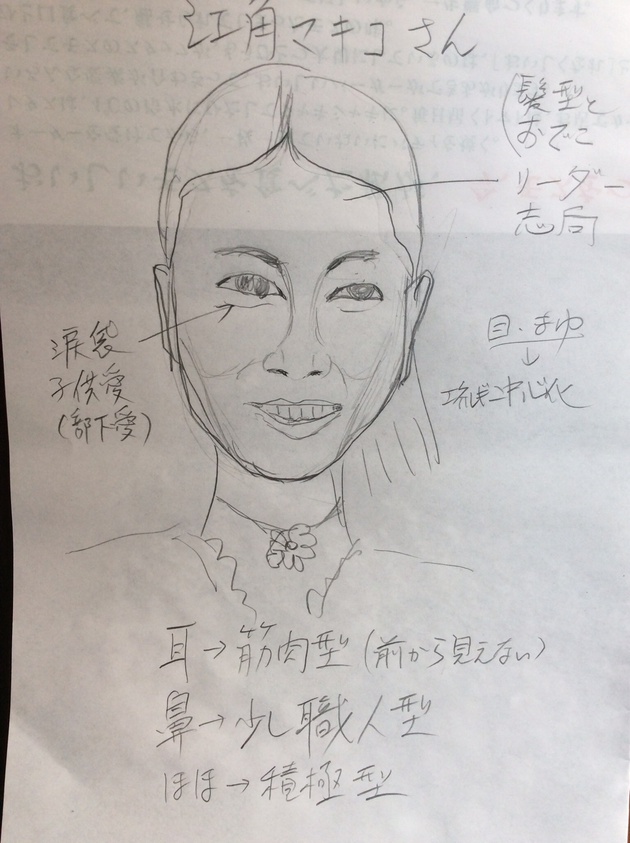 江角マキコさん
(髪型と
おでこ
リーダー
志向
涙袋
子供愛
(部下愛)
目・まゆ
↓
耳→筋肉型(前から見えない)
鼻→少し職人型
ほほ→積極型